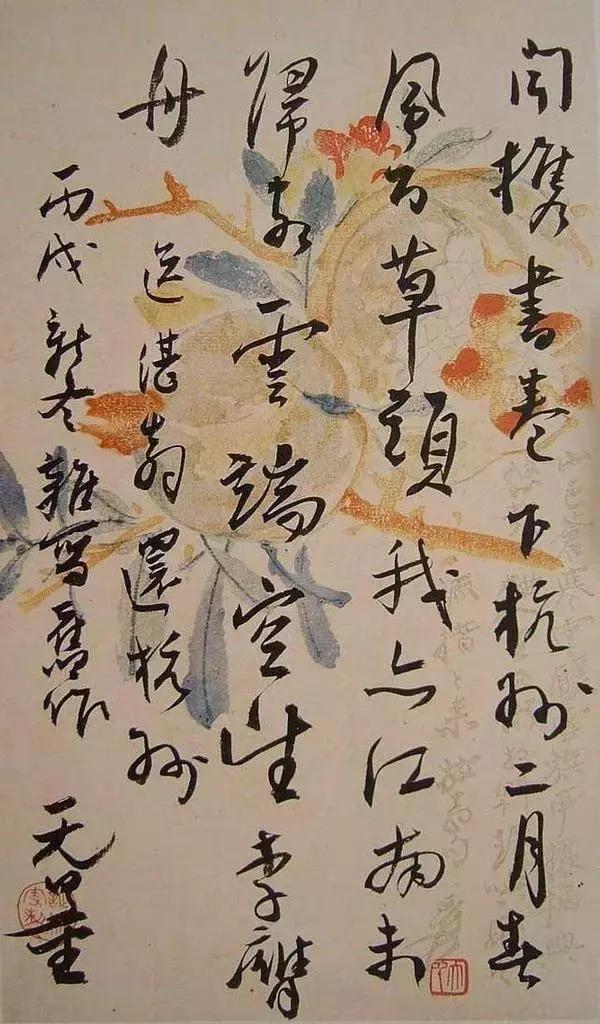 聞携書卷下杭州二月春
風百草頭我亦江南未
歸客雲端空望李膺
舟
送湛翁還杭州
丙戌新冬雜寫舊作
无量